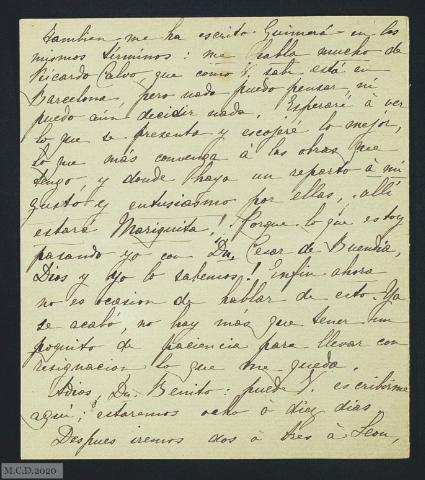 tambien me ha escrito Guimerá en los
mismos términos: me habla mucho de
Ricardo Calvo, que como V. sabe está en
Barcelona, pero nada puedo pensar, ni
puedo aun decidir nada. Esperaré à ver
lo que se presenta y escojeré lo mejor,
lo que más convenga à las obras que
tengo y donde haya un reparto à mi
gusto y entusiasmo por ellas, allí
estará Mariquita! Porque lo que estoy
pasando yo con Dn. Cesar de Buendia,
Dios y yo lo sabemos! Enfin ahora
no es ocasion de hablar de esto. Ya
se acabó, no hay más que tener un
poquito de paciencia para llevar con
resignacion lo que me queda.
Adios, Dn. Benito: puede V. escribirme
aquí; estaremos ocho ò diez dias
Despues iremos dos ò tres à Leon,
M.C.D.2020